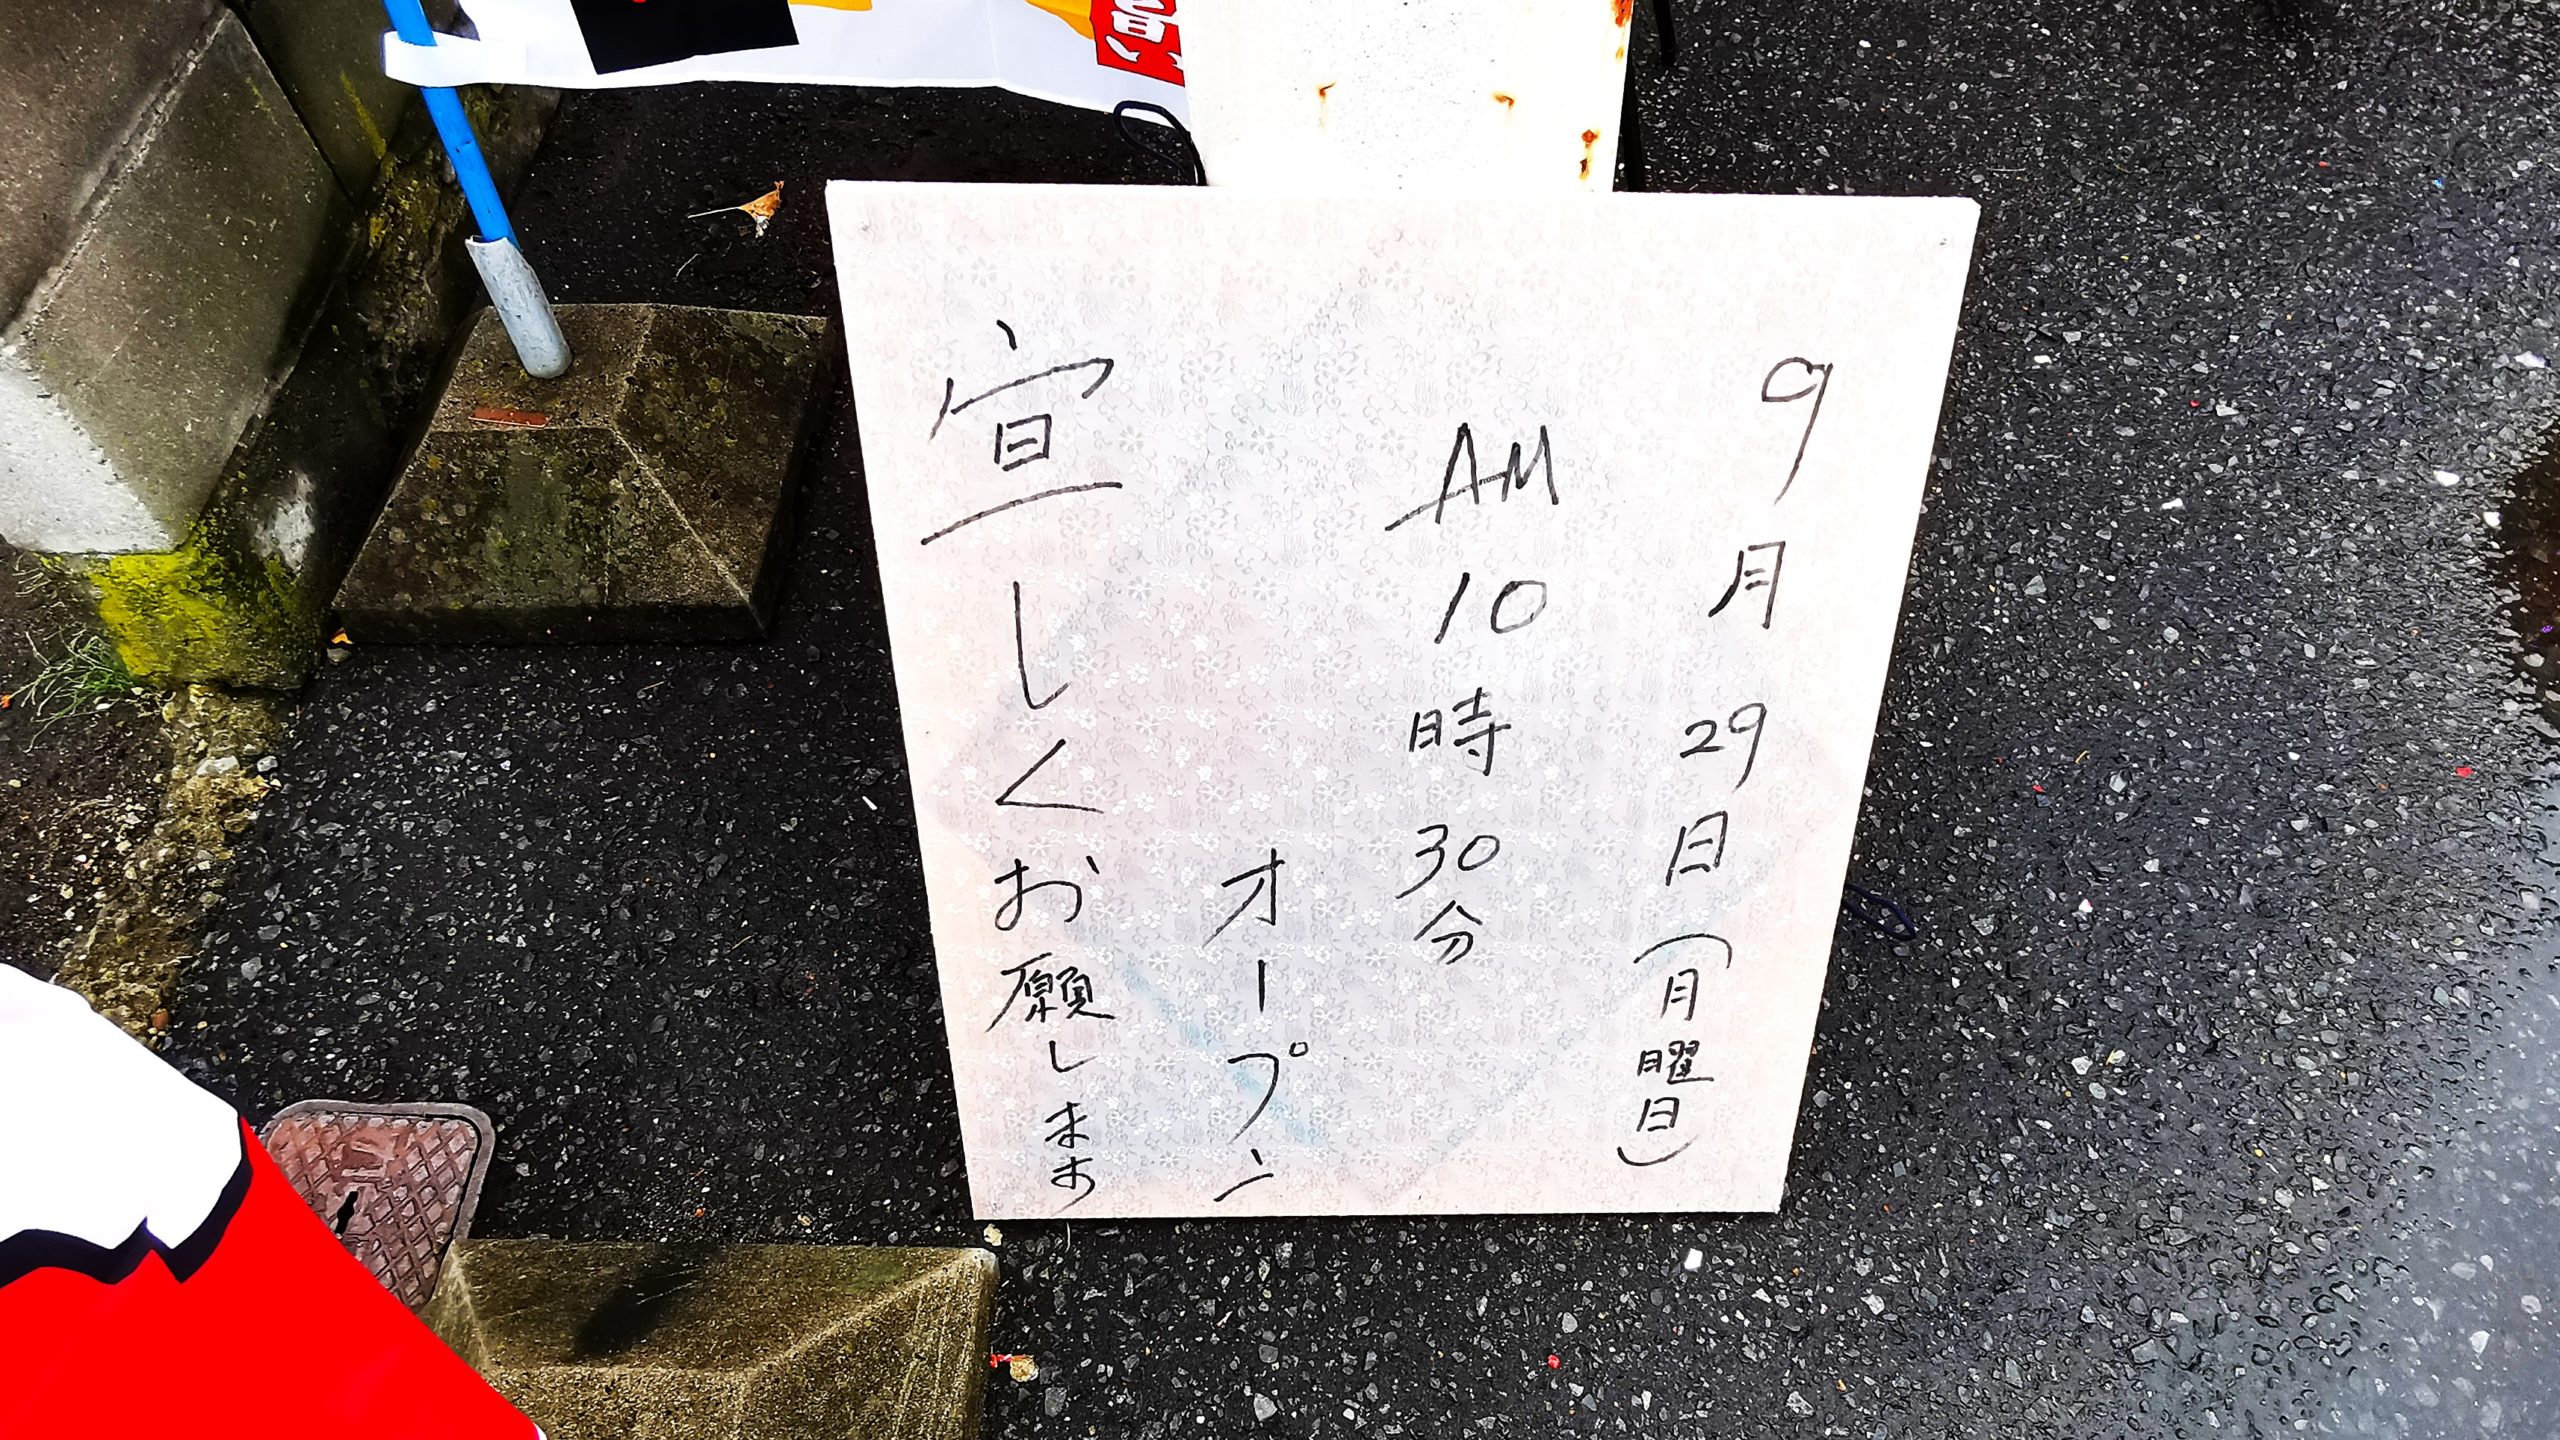 9月29日(月曜日)
AM10時30分
オープン
宜しくお願します